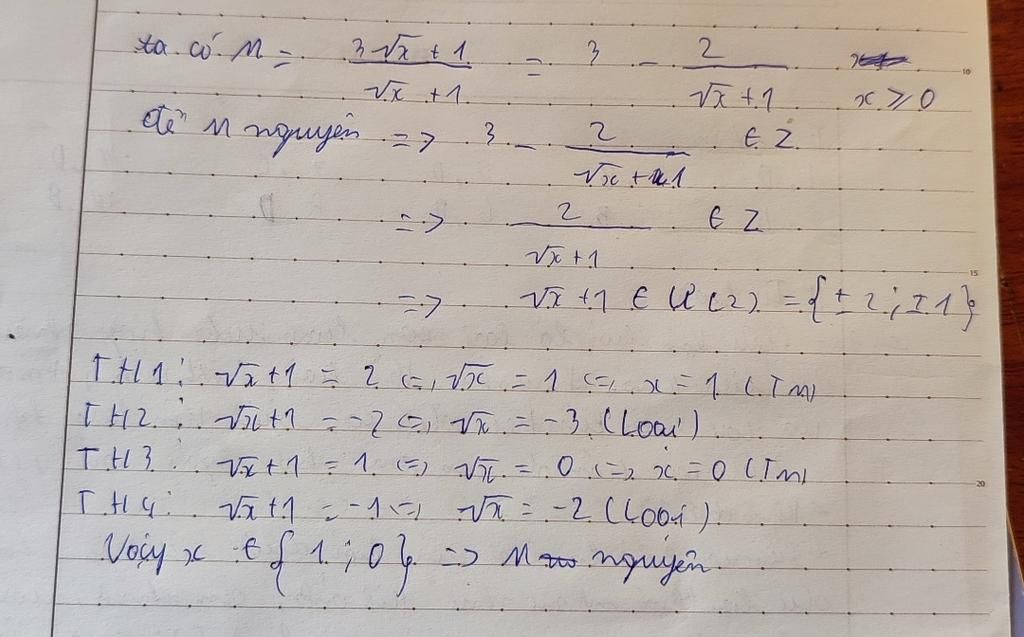 ta có M = (3√x + 1)/(√x + 1) = 3 - 2/(√x + 1) x ≥ 0
để M nguyên => 3 - 2/(√x + 1) ∈ Z
=> 2/(√x + 1) ∈ Z
=> √x + 1 ∈ Ư(2) = {± 2 ; ± 1}
TH1: √x + 1 = 2 <=> √x = 1 <=> x = 1 (TM)
TH2: √x + 1 = -2 <=> √x = -3 (Loại)
TH3: √x + 1 = 1 <=> √x = 0 <=> x = 0 (TM)
TH4: √x + 1 = -1 <=> √x = -2 (Loại)
Vậy x ∈ {1 ; 0} => M nguyên